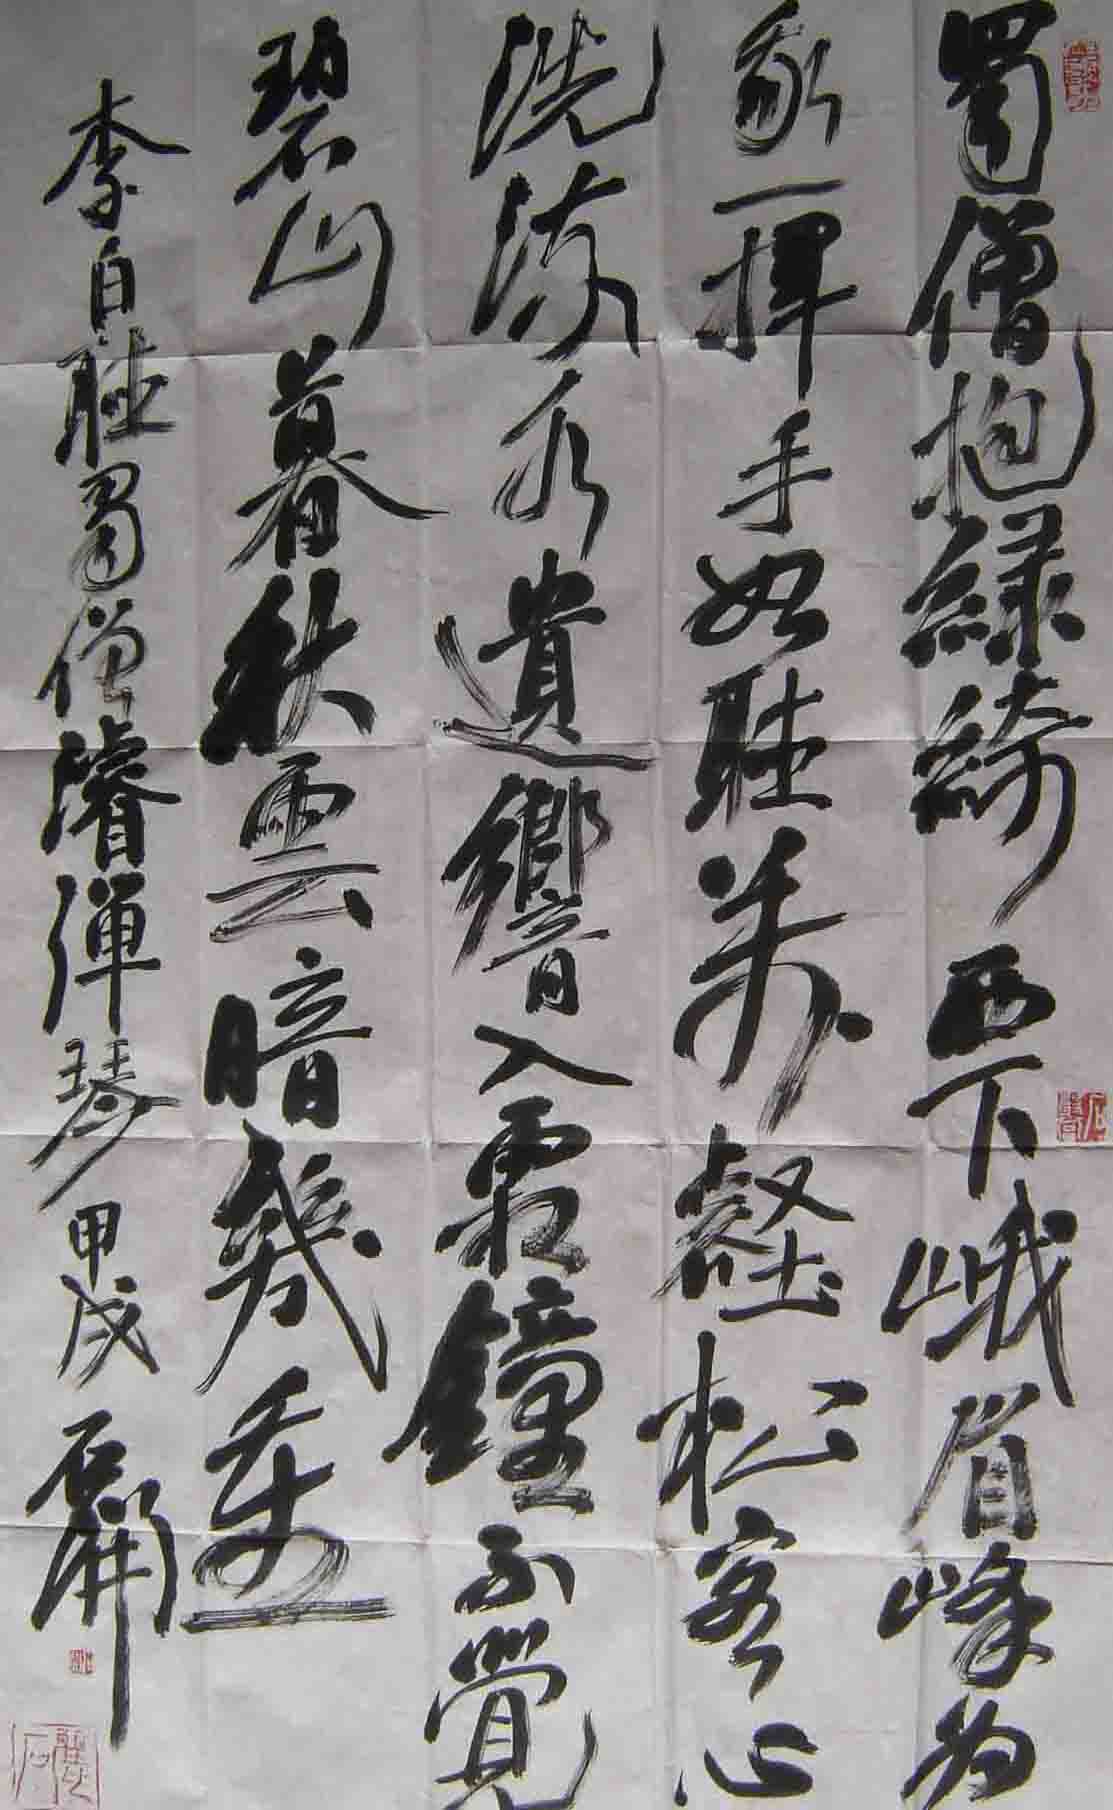 蜀僧抱綠綺西下峨眉峰為
我一揮手如聽萬壑松客心
洗流水遺響入霜鐘不覺
碧山暮秋雲暗幾重
李白聽蜀僧濬彈琴 甲戌 石